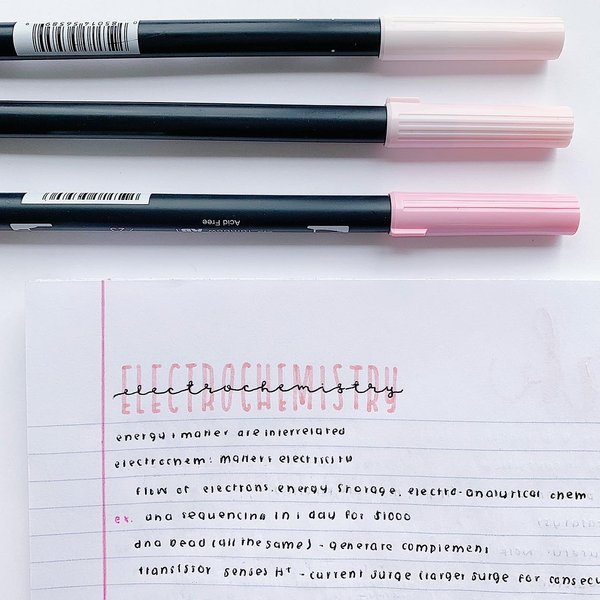 Acid Free
ELECTROCHEMISTRY
electrochemistry
energy & matter are interrelated
electrochem: matter & electricity
flow of electrons, energy storage, electro-analytical chem
ex. dna sequencing in 1 day for $1000
dna bead (all the same) - generate complement
transistor senses H⁺ - current surge (larger surge for consecu